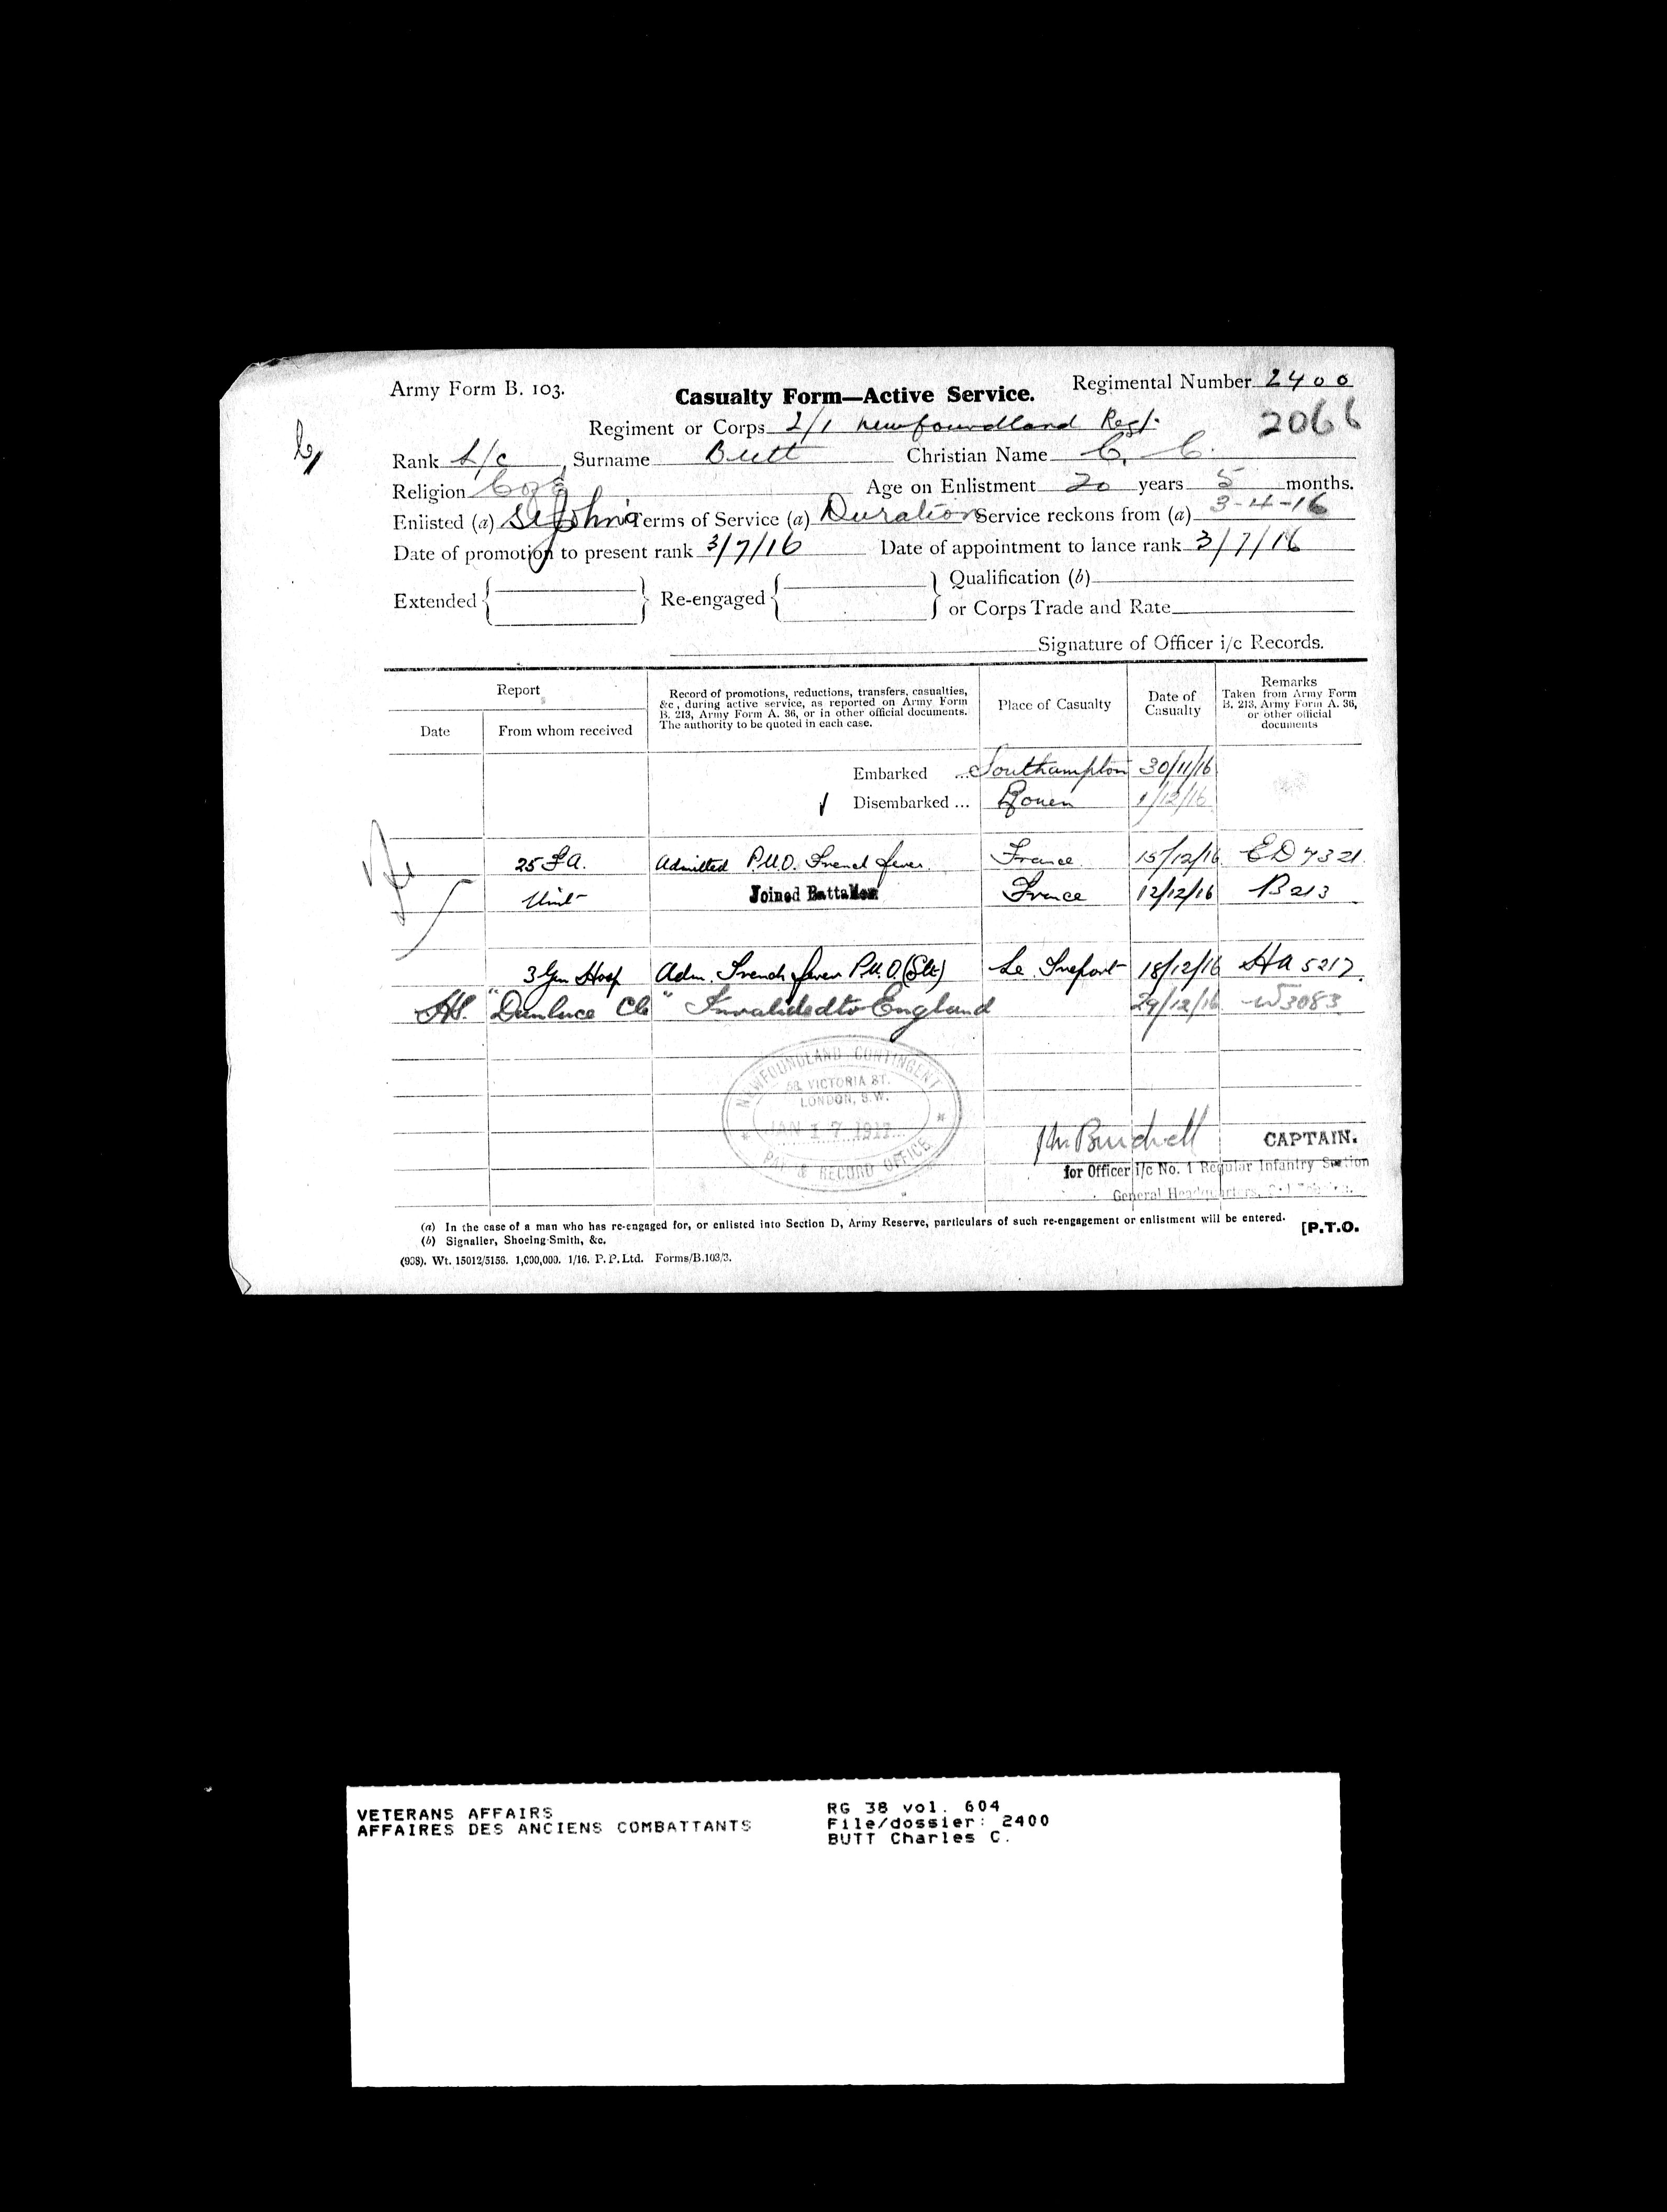 Army Form B. 103.
Casualty Form—Active Service.
Regimental Number 2400
2066
Regiment or Corps 2/1 Newfoundland Regt.
Rank L/c Surname Butt Christian Name C. C.
Religion C of E Age on Enlistment 20 years 5 months.
Enlisted (a) St John's Terms of Service (a) Duration Service reckons from (a) 3-4-16
Date of promotion to present rank 3/7/16 Date of appointment to lance rank 3/7/16
Extended Re-engaged Qualification (b)
or Corps Trade and Rate
Signature of Officer i/c Records.
Report
Date
From whom received
Record of promotions, reductions, transfers, casualties,
&c., during active service, as reported on Army Form
B. 213, Army Form A. 36, or in other official documents.
The authority to be quoted in each case.
Place of Casualty
Date of
Casualty
Remarks
Taken from Army Form
B. 213, Army Form A. 36,
or other official
documents
Embarked ... Southampton 30/11/16
Disembarked ... Rouen 1/12/16
25 F.A. Admitted P.U.O. Trench fever. France 15/12/16 ED 7321
Unit Joined Battalion France 12/12/16 B 213
3 Gen Hosp Adm. Trench fever P.U.O. (Slt) Le Treport 18/12/16 HA 5217
HS. "Dunluce Cle" Invalided to England 29/12/16 W3083
NEWFOUNDLAND CONTINGENT
58 VICTORIA ST.
LONDON, S.W.
JAN 17 1917
PAY & RECORD OFFICE
CAPTAIN.
for Officer i/c No. 1 Regular Infantry Section
General Headquarters,
(a) In the case of a man who has re-engaged for, or enlisted into Section D, Army Reserve, particulars of such re-engagement or enlistment will be entered.
(b) Signaller, Shoeing-Smith, &c.
[P.T.O.
(938). Wt. 15012/5156. 1,000,000. 1/16. P. P. Ltd. Forms/B.103/3.
VETERANS AFFAIRS
AFFAIRES DES ANCIENS COMBATTANTS
RG 38 vol. 604
File/dossier: 2400
BUTT Charles C.